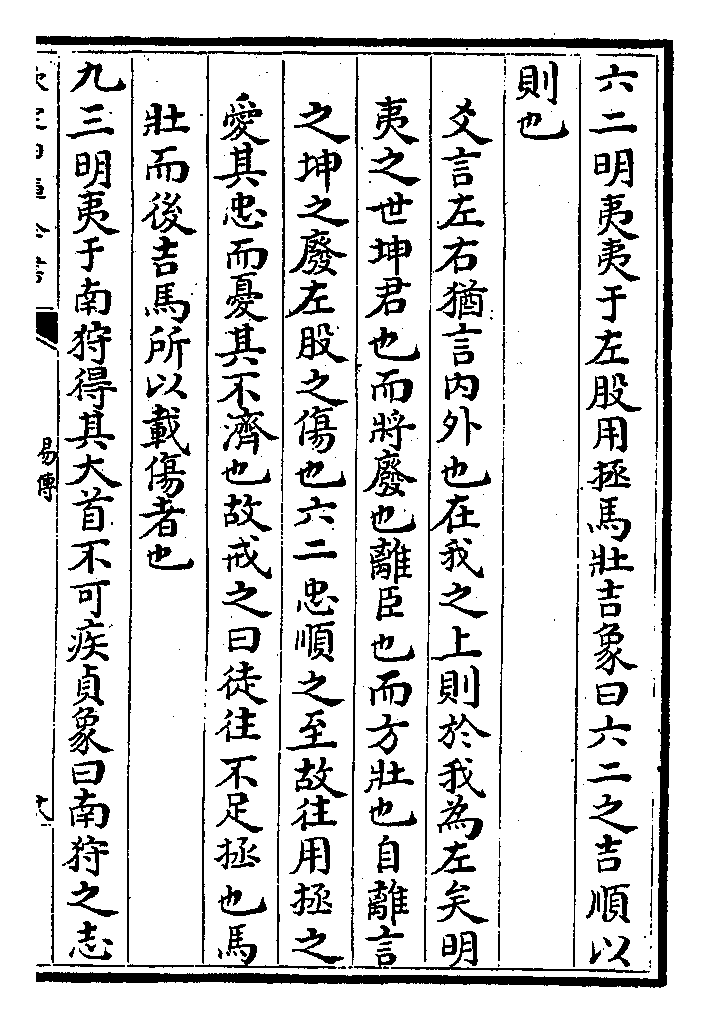 六二明夷夷于左股用拯馬壯吉象曰六二之吉順以
則也
爻言左右猶言内外也在我之上則於我為左矣明
夷之世坤君也而將廢也離臣也而方壯也自離言
之坤之廢左股之傷也六二忠順之至故往用拯之
愛其忠而憂其不濟也故戒之曰徒往不足拯也馬
壯而後吉馬所以載傷者也
九三明夷于南狩得其大首不可疾貞象曰南狩之志
易傳